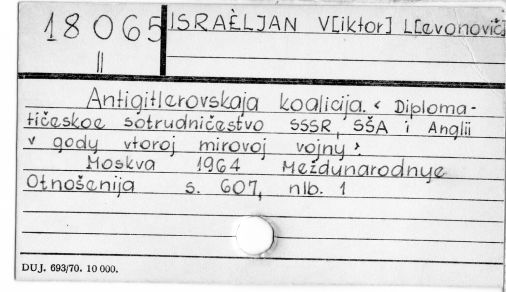 18065 ISRAÈLJAN V[iktor] L[evonovič]
||
Antigitlerovskaja koalicija. < Diploma-
tičeskoe sotrudničestvo SSSR, SŠA i Anglii
v gody vtoroj mirovoj vojny >.
Moskva 1964 Meždunarodnye
Otnošenija s. 607, nlb. 1
DUJ. 693/70. 10 000.